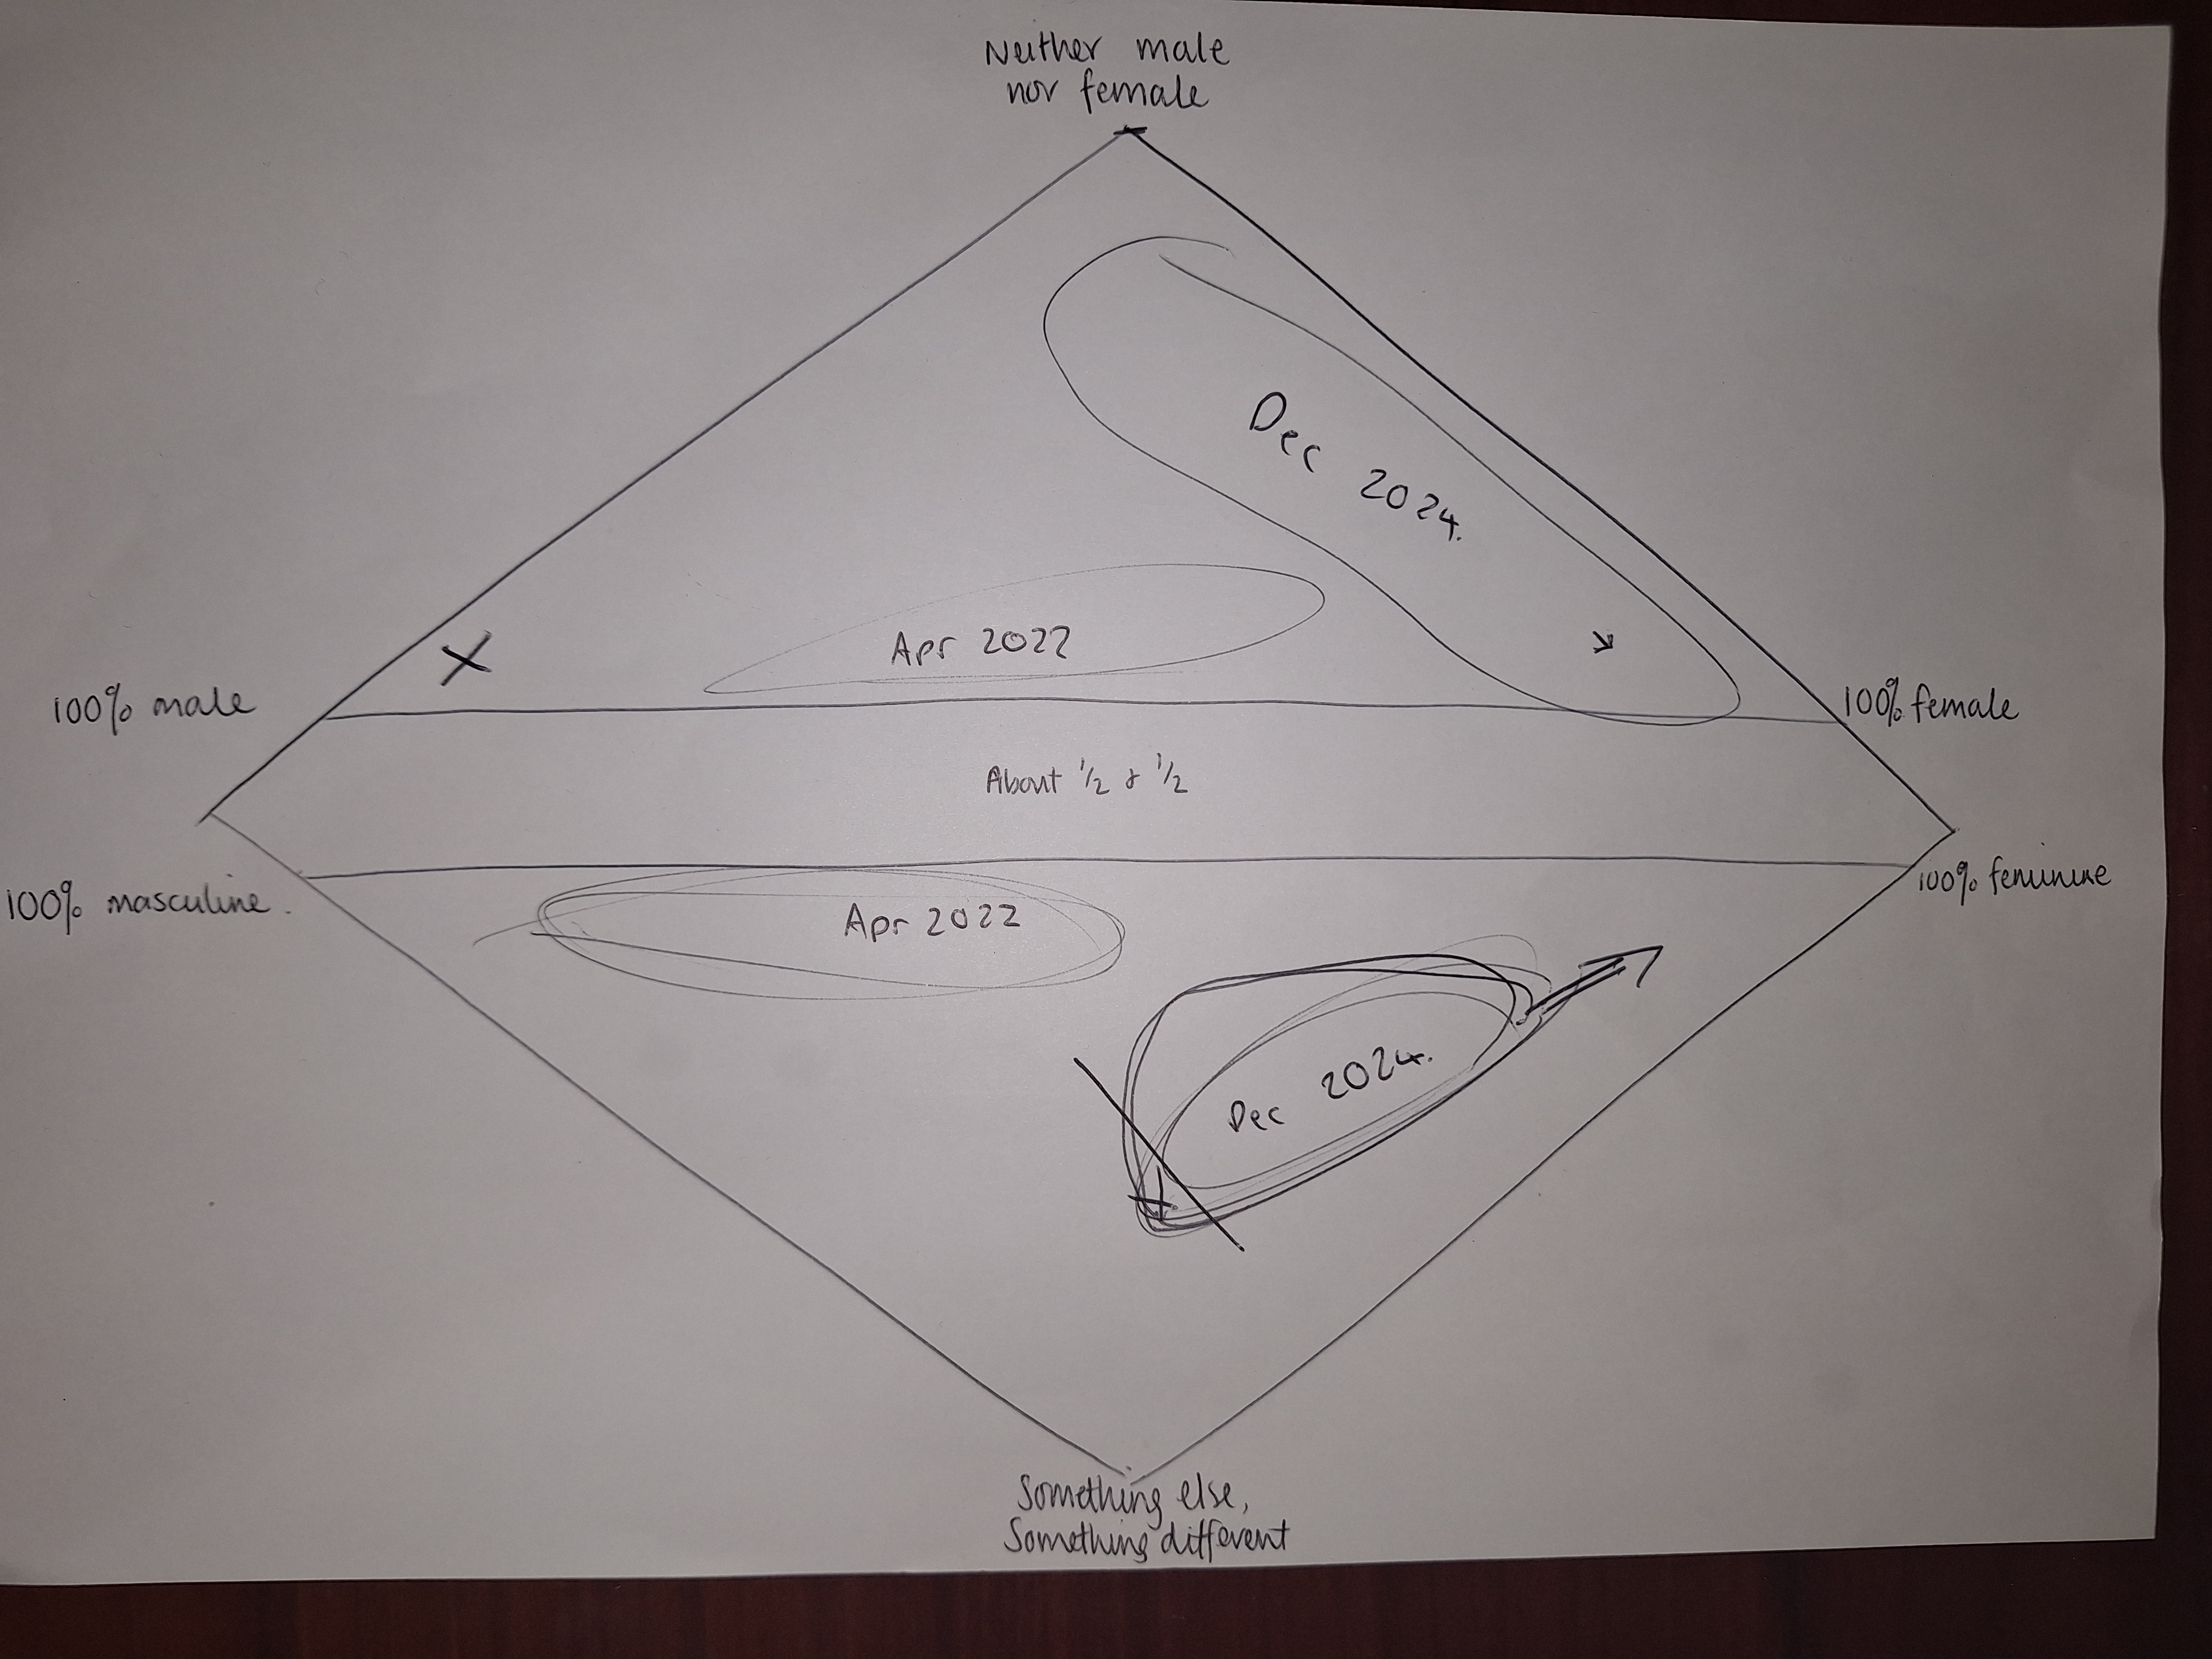 Neither male
nor female
Dec 2024.
Apr 2022
100% male
100% female
About 1/2 & 1/2
100% masculine.
100% feminine
Apr 2022
Dec 2024.
Something else,
Something different